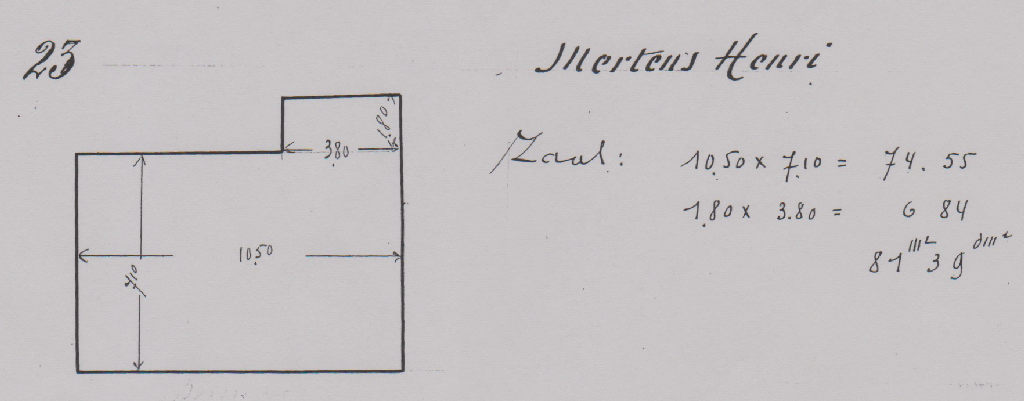 23
Mertens Henri
1.80
3.80
7.10
10.50
Zaal: 10.50 x 7.10 = 74.55
1.80 x 3.80 = 6 84
81 m² 39 dm²